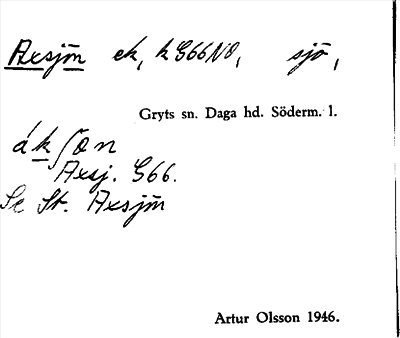 Axsjön ek, k G66NO, sjö,
Gryts sn. Daga hd. Söderm. l.
ák∫ön
Axsj. G66.
Se St. Axsjön
Artur Olsson 1946.